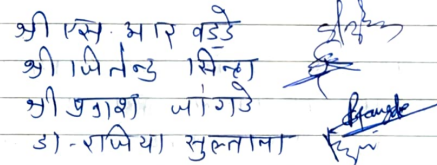 श्री एस. आर वड्डे
श्री जितेन्द्र सिन्हा
श्री प्रकाश जांगडे
डा.-राजिया सुल्ताना